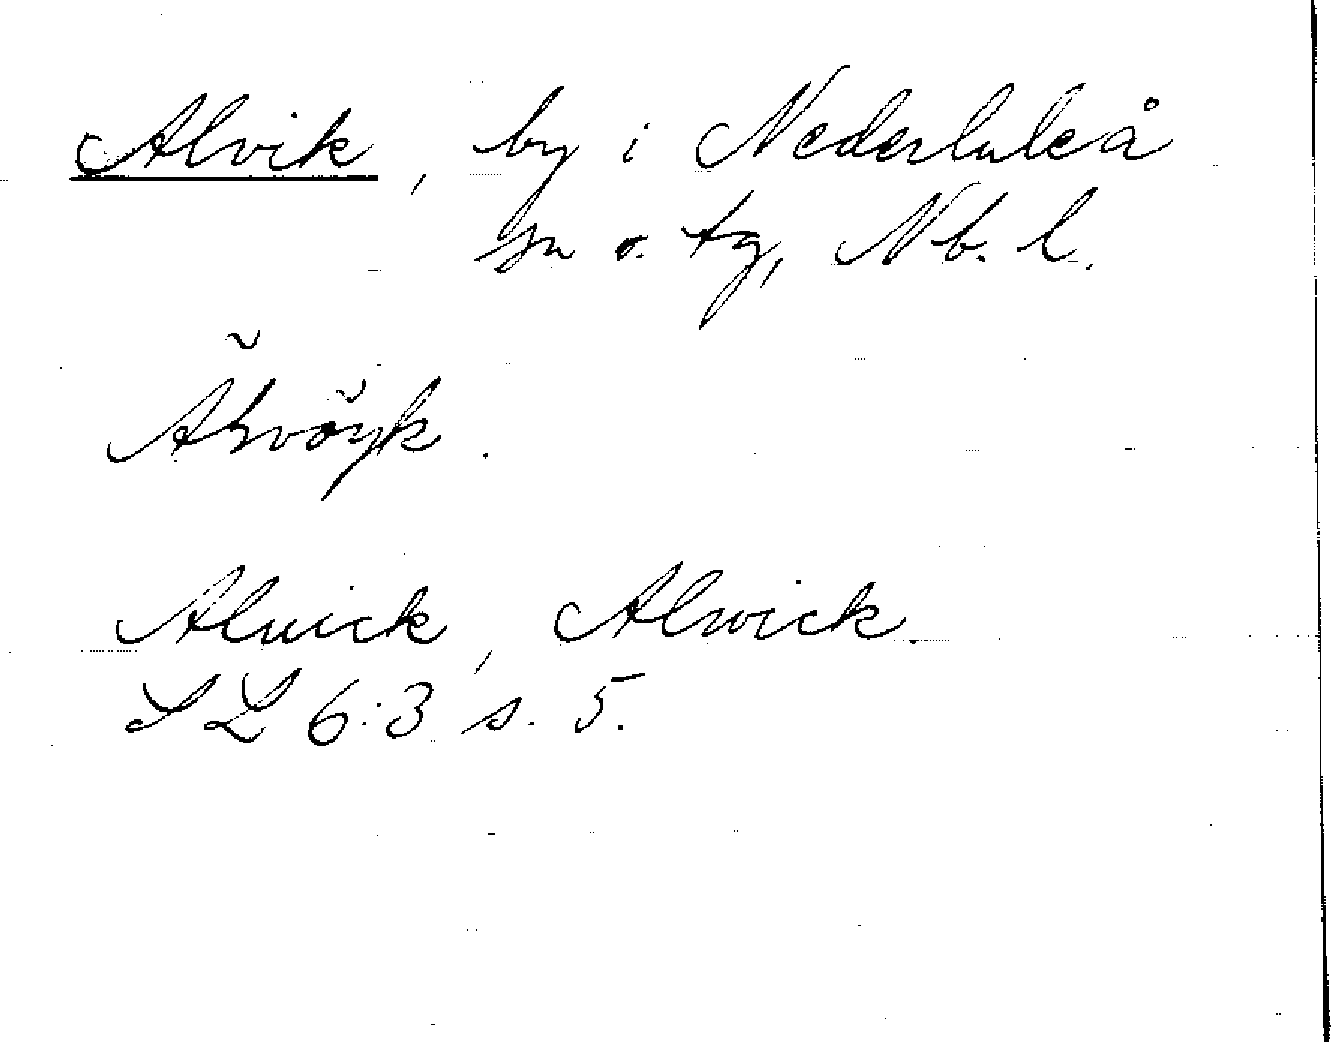 Alvik, by i Nederluleå
sn o. tg, Nb. l.
Alwick, Alwick
SL 6:3 s. 5.